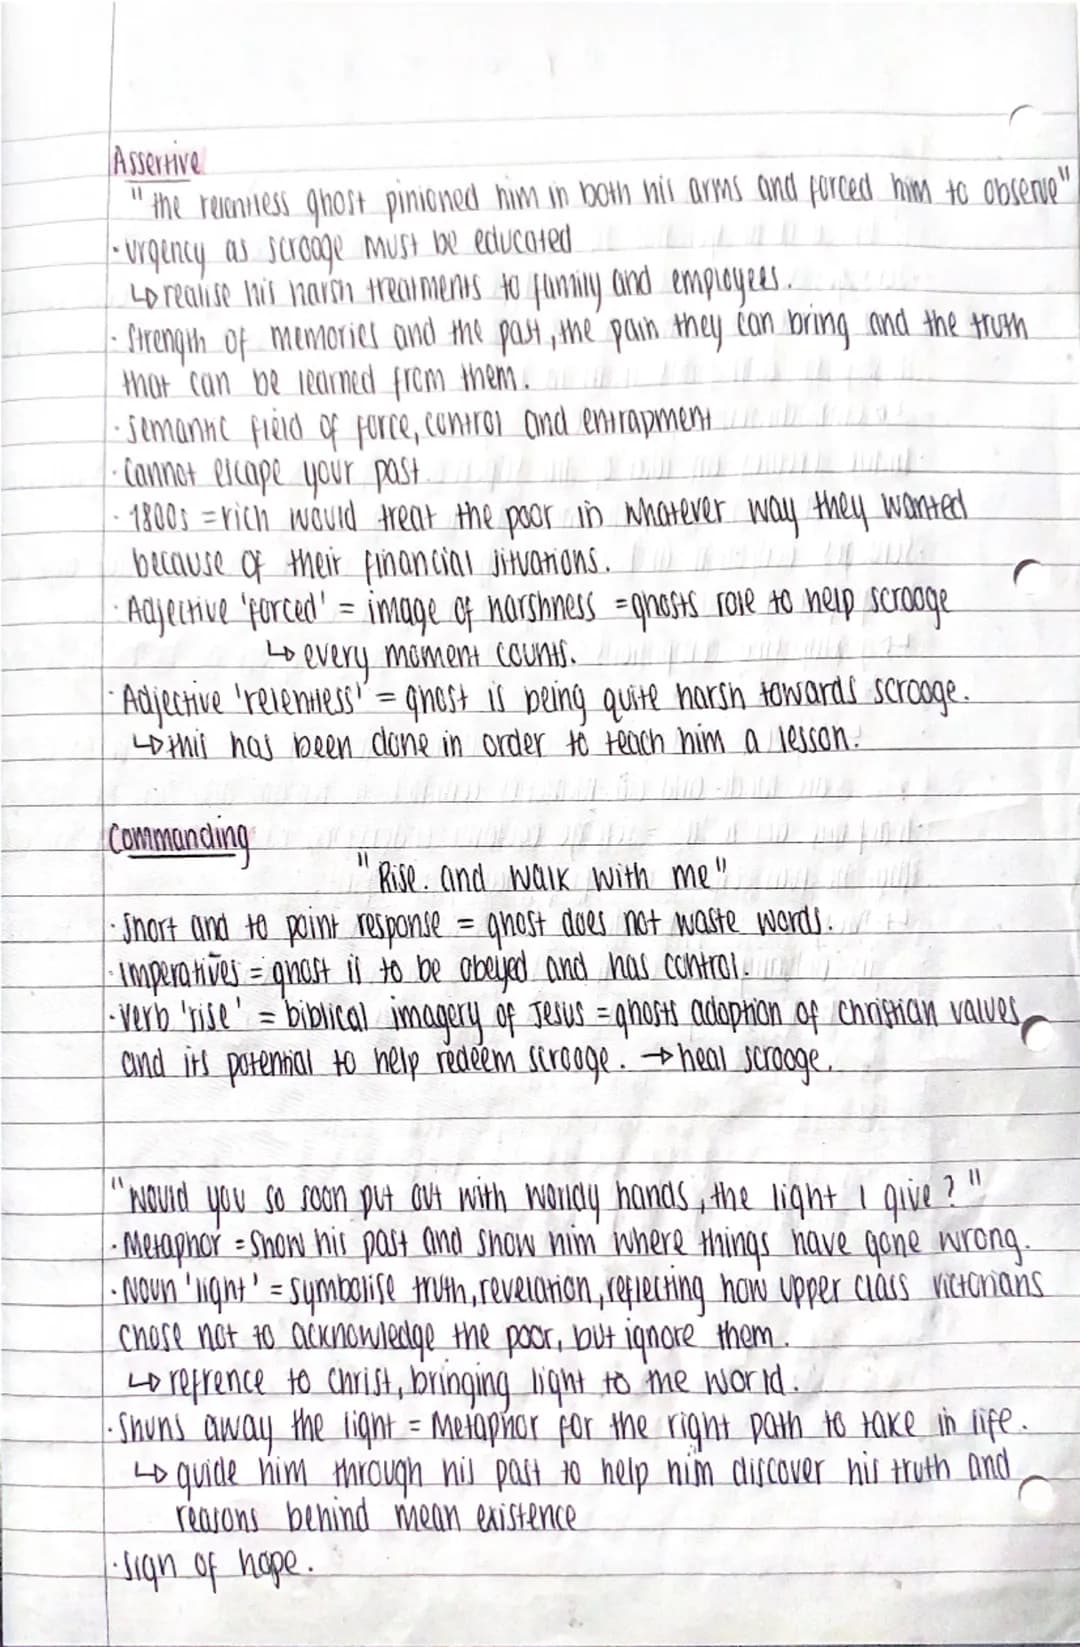 Assertive
"the relentless ghost pinioned him in both his arms and forced him to observe"
· Urgency as scrooge must be educated
↳ realise his harsh treatments to family and employees.
· Strength of memories and the past, the pain they can bring and the truth
that can be learned from them.
· Semantic field of force, control and entrapment
· Cannot escape your past.
· 1800s = rich would treat the poor in whatever way they wanted
because of their financial situations.
· Adjective 'forced' = image of harshness = ghosts role to help scrooge
↳ every moment counts.
· Adjective 'relentless' = ghost is being quite harsh towards scrooge.
↳ this has been done in order to teach him a lesson.
Commanding
"Rise. and walk with me"
· Short and to point response = ghost does not waste words.
· imperatives = ghost is to be obeyed and has control.
· verb 'rise' = biblical imagery of Jesus = ghosts adoption of christian values
and its potential to help redeem scrooge. → heal scrooge.
"Would you so soon put out with worldy hands, the light I give?"
· Metaphor = Show his past and show him where things have gone wrong.
· Noun 'light' = symbolise truth, revelation, reflecting how upper class victorians
chose not to acknowledge the poor, but ignore them.
↳ refrence to Christ, bringing light to the world.
· Shuns away the light = Metaphor for the right path to take in life.
↳ guide him through his past to help him discover his truth and
reasons behind mean existence
· Sign of hope.